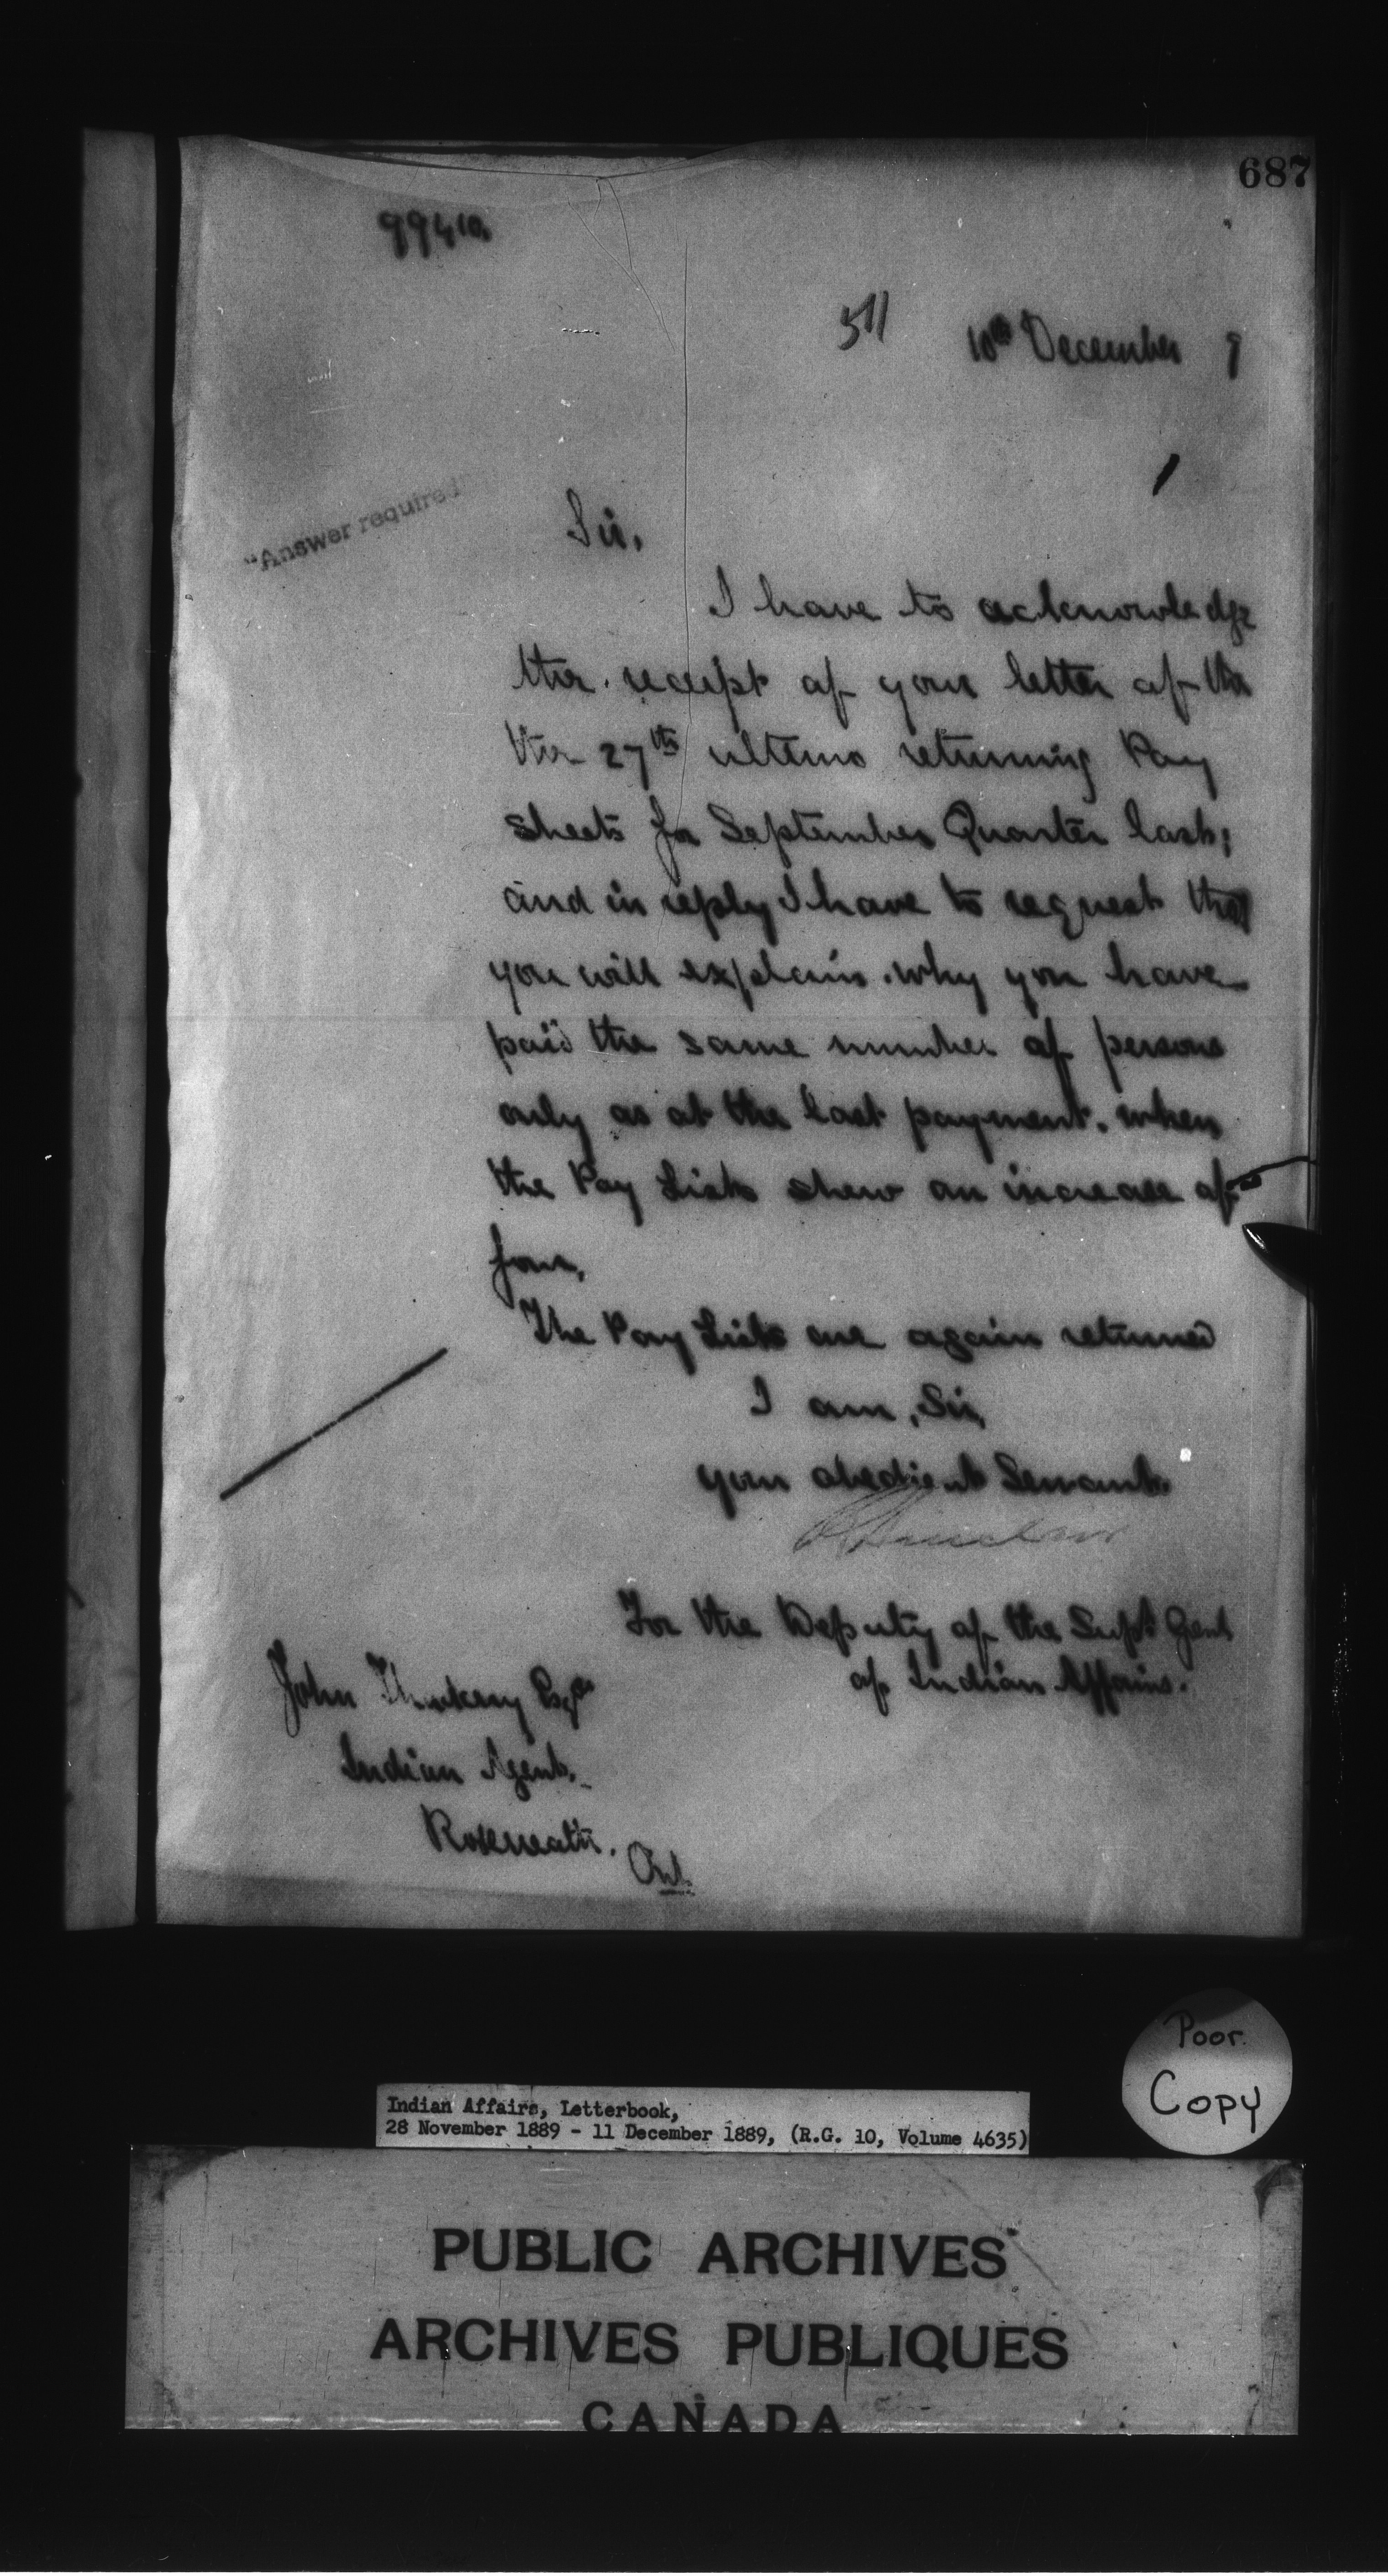 687
99410.
511
10th December 9
"Answer required"
Sir,
I have to acknowledge
the receipt of your letter of the
the 27th ultimo returning Pay
sheets for September Quarter last;
and in reply I have to request that
you will explain why you have
paid the same number of persons
only as at the last payment, when
the Pay Lists shew an increase of
four.
The Pay Lists are again returned
I am, Sir,
your obedient Servant.
For the Deputy of the Supt Genl
of Indian Affairs.
John Thackeray Esqre
Indian Agent.
Roseneath.
Ont.
Poor.
Copy
Indian Affairs, Letterbook,
28 November 1889 - 11 December 1889, (R.G. 10, Volume 4635)
PUBLIC ARCHIVES
ARCHIVES PUBLIQUES
CANADA